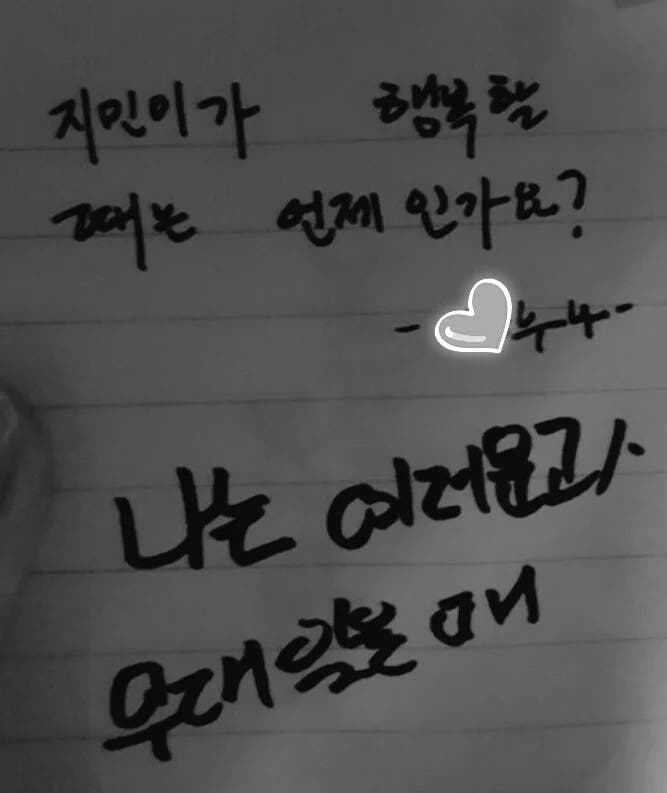 지민이가 행복할
때는 언제 인가요?
- 누나 -
나는 여러분과
무대있을 때